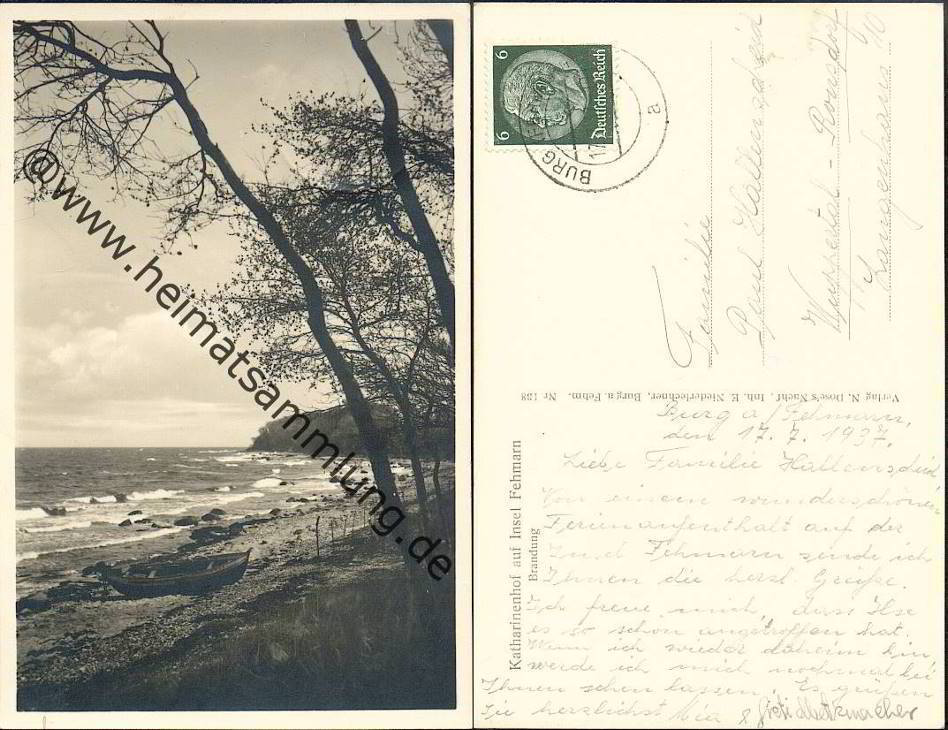 @www.heimatsammlung.de
6
6
Deutsches Reich
BURG
17
a
Familie
Paul Hallenscheid
Wuppertal - Ronsdorf
Verlag N. Dose's Nachf., Inh. E. Niederlechner, Burg a. Fehm. Nr 138
Katharinenhof auf Insel Fehmarn
Brandung
Burg a/Fehmarn,
den 17.7.1937.
Liebe Familie Hallenscheid
Von einem wunderschönen
Ferienaufenthalt auf der
Insel Fehmarn sende ich
Ihnen die herzl. Grüße.
Ich freue mich, dass Ilse
es so schön angetroffen hat.
Wenn ich wieder daheim bin
werde ich mich nochmal bei
Ihnen sehen lassen. Es grüßen
Sie herzlichst Mia &